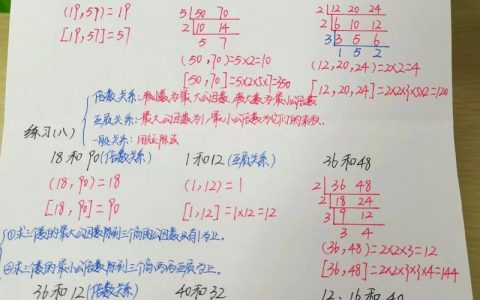 (19,57)=19
[19,57]=57
5 50 70
2 10 14
5 7
(50,70)=5×2=10
[50,70]=5×2×5×7=350
2 12 20 24
2 6 10 12
3 3 5 6
1 5 2
(12,20,24)=2×2=4
[12,20,24]=2×2×3×5×2=120
倍数关系:较小数为最大公因数,较大数为最小公倍数
互质关系:最大公因数为1/最小公倍数为它们的乘积.
一般关系:用短除法
练习(八)
18和90(倍数关系)
(18,90)=18
[18,90]=90
1和12(互质关系)
(1,12)=1
[1,12]=1×12=12
36和48
2 36 48
2 18 24
3 9 12
3 4
(36,48)=2×2×3=12
[36,48]=2×2×3×3×4=144
①求三个数的最大公因数除到三个商的公因数只有1为止。
②求三个数的最小公倍数除到三个商两两互质为止。
36和12(倍数关系)
40和32
12、16和40